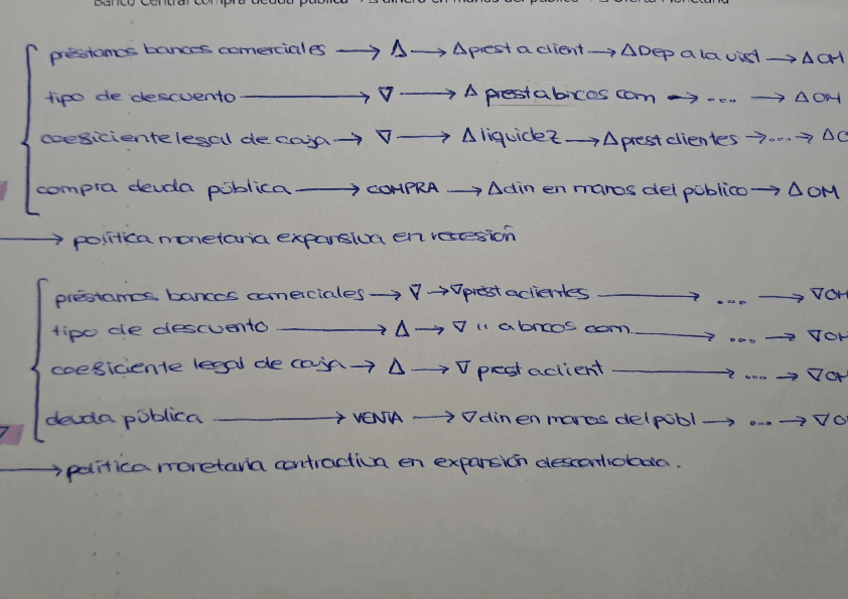 Banco Central compra deuda pública → Δ dinero en manos del público → Δ Oferta Monetaria
préstamos bancos comerciales → Δ → Δ prest a client → Δ Dep a la vist → Δ OM
tipo de descuento → ∇ → Δ prest a bncos com → .... → Δ OM
coeficiente legal de caja → ∇ → Δ liquidez → Δ prest clientes → ... → Δ O
compra deuda pública → COMPRA → Δ din en manos del público → Δ OM
→ política monetaria expansiva en recesión
préstamos bancos comerciales → ∇ → ∇ prest a clientes → .... → ∇ OM
tipo de descuento → Δ → ∇ " a bncos com → ... → ∇ OM
coeficiente legal de caja → Δ → ∇ prest a client → .... → ∇ OM
deuda pública → VENTA → ∇ din en manos del públ → ... → ∇ O
→ política monetaria contractiva en expansión descontrolada.